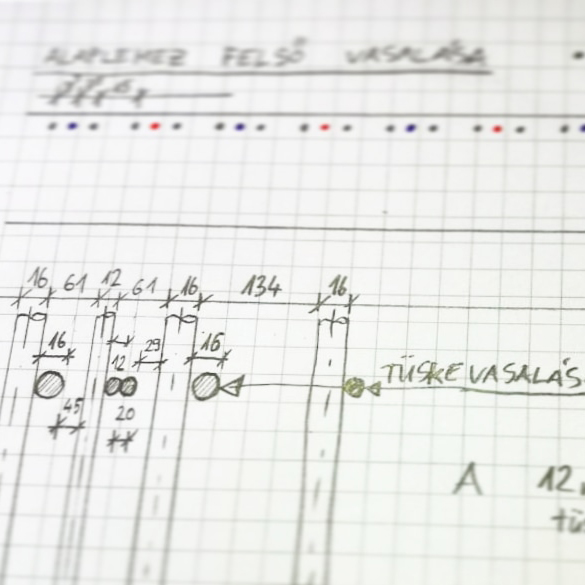 ALAPLEMEZ FELSŐ VASALÁSA
16 61 12 61 16 134 16
16 12 29 16
TÜSKEVASALÁS
45 20
A 12